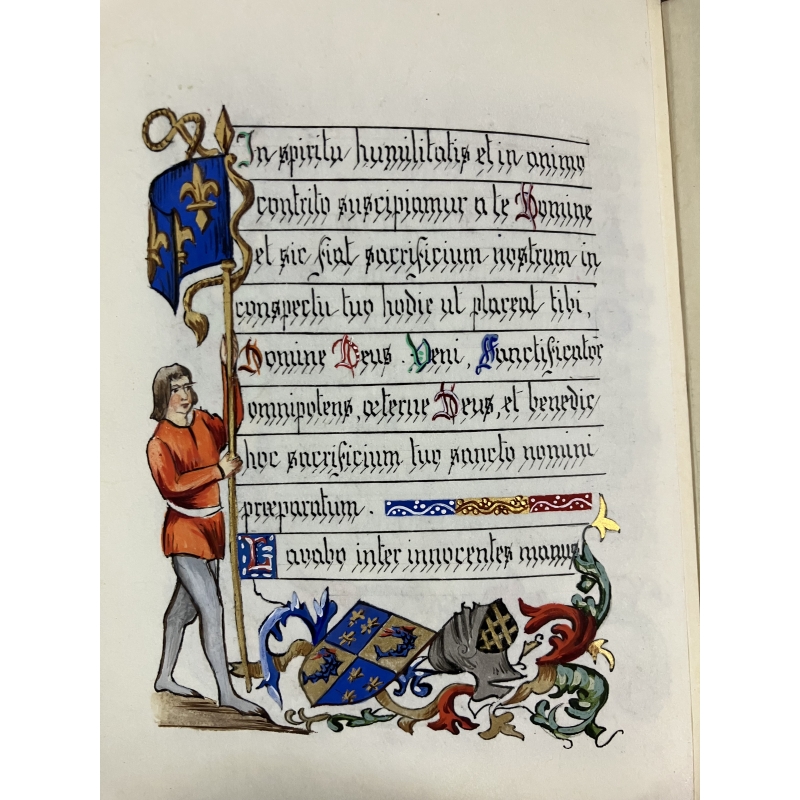 In spiritu humilitatis et in animo
contrito suscipiamur a te Domine
et sic fiat sacrificium nostrum in
conspectu tuo hodie ut placeat tibi,
Domine Deus. Veni, Sanctificator
omnipotens, æterne Deus, et benedic
hoc sacrificium tuo sancto nomini
præparatum.
Lavabo inter innocentes manus